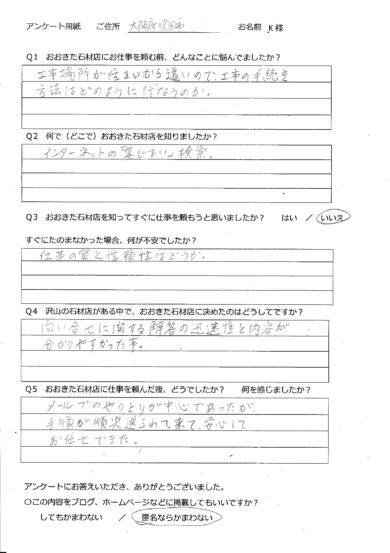 アンケート用紙　ご住所　大阪府吹田市　お名前　K 様
Q1　おおきた石材店にお仕事を頼む前、どんなことに悩んでましたか？
工事場所が住まいから遠いので、工事の手続き
方法はどのように行なうのか。
Q2　何で（どこで）おおきた石材店を知りましたか？
インターネットの「墓じまい」検索。
Q3　おおきた石材店を知ってすぐに仕事を頼もうと思いましたか？　はい　/　いいえ
すぐにたのまなかった場合、何が不安でしたか？
仕事の質と信頼性はどうか。
Q4　沢山の石材店がある中で、おおきた石材店に決めたのはどうしてですか？
問い合せに関する解答の迅速性と内容が
分かりやすかった事。
Q5　おおきた石材店に仕事を頼んだ後、どうでしたか？　何を感じましたか？
メールでのやりとりが中心であったが、
手順が順次送られて来て、安心して
お任せできた。
アンケートにお答えいただき、ありがとうございました。
○この内容をブログ、ホームページなどに掲載してもいいですか？
してもかまわない　/　匿名ならかまわない